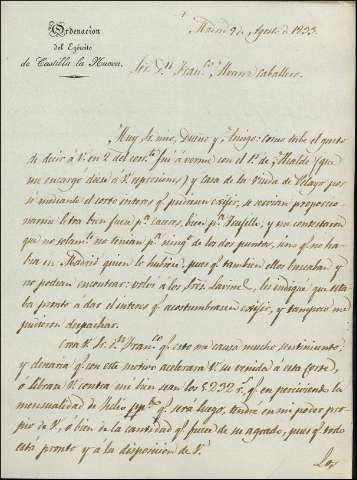 Ordenacion
del Ejército
de Castilla la Nueva.
Madrid 9 de Agosto de 1833.
Sor. Dn. Franco. Alvarez Caballero.
Muy Sr. mio, Dueño y Amigo: como tube el gusto
de decir á V. en 2 del corrte. fui á verme con el Sr. de Alcalde (que
me encargó diera á V. espresiones) y casa de la Viuda de Pelayo por
si mediante el corto interes qe. pudieran exijir, se servian proporcio
narme letra bien fuese pa. Caceres, bien pa. Trujillo, y me contestaron
que no solamte. no tenian pa. ningo. de los dos puntos, sino qe. no ha
bia en Madrid quien la hubiera, pues qe. tambien ellos buscaban y
no podian encontrar: volví á los Sres. la dige que esta
ba pronto á dar el interes qe. acostumbrasen exijir, y tampoco me
pudieron despachar.
Crea V. Sr. Dn. Franco. qe. esto me causa mucho sentimiento,
y desearia qe. con este motivo acelerara V. su venida á esta Corte,
ó librara V. contra mi bien sean los 5232 rs. qe. en percibiendo la
mensualidad de Julio qe. será luego, tendré en mi poder pro
pio de V., ó bien de la cantidad qe. fuere de su agrado, pues qe. todo
está pronto y á la disposicion de V.
Los